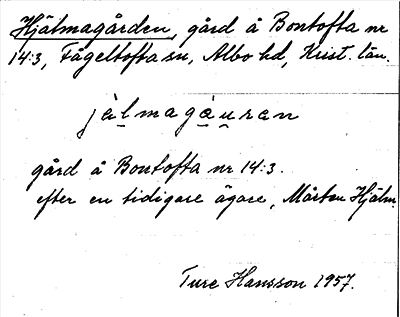 Hjälmagården, gård å Bontofta nr
14:3, Fågeltofta sn, Albo hd, Krist. län.
jälmagạ̊u̯ran
gård å Bontofta nr 14:3.
efter en tidigare ägare, Mårten Hjälm.
Ture Hansson 1957.